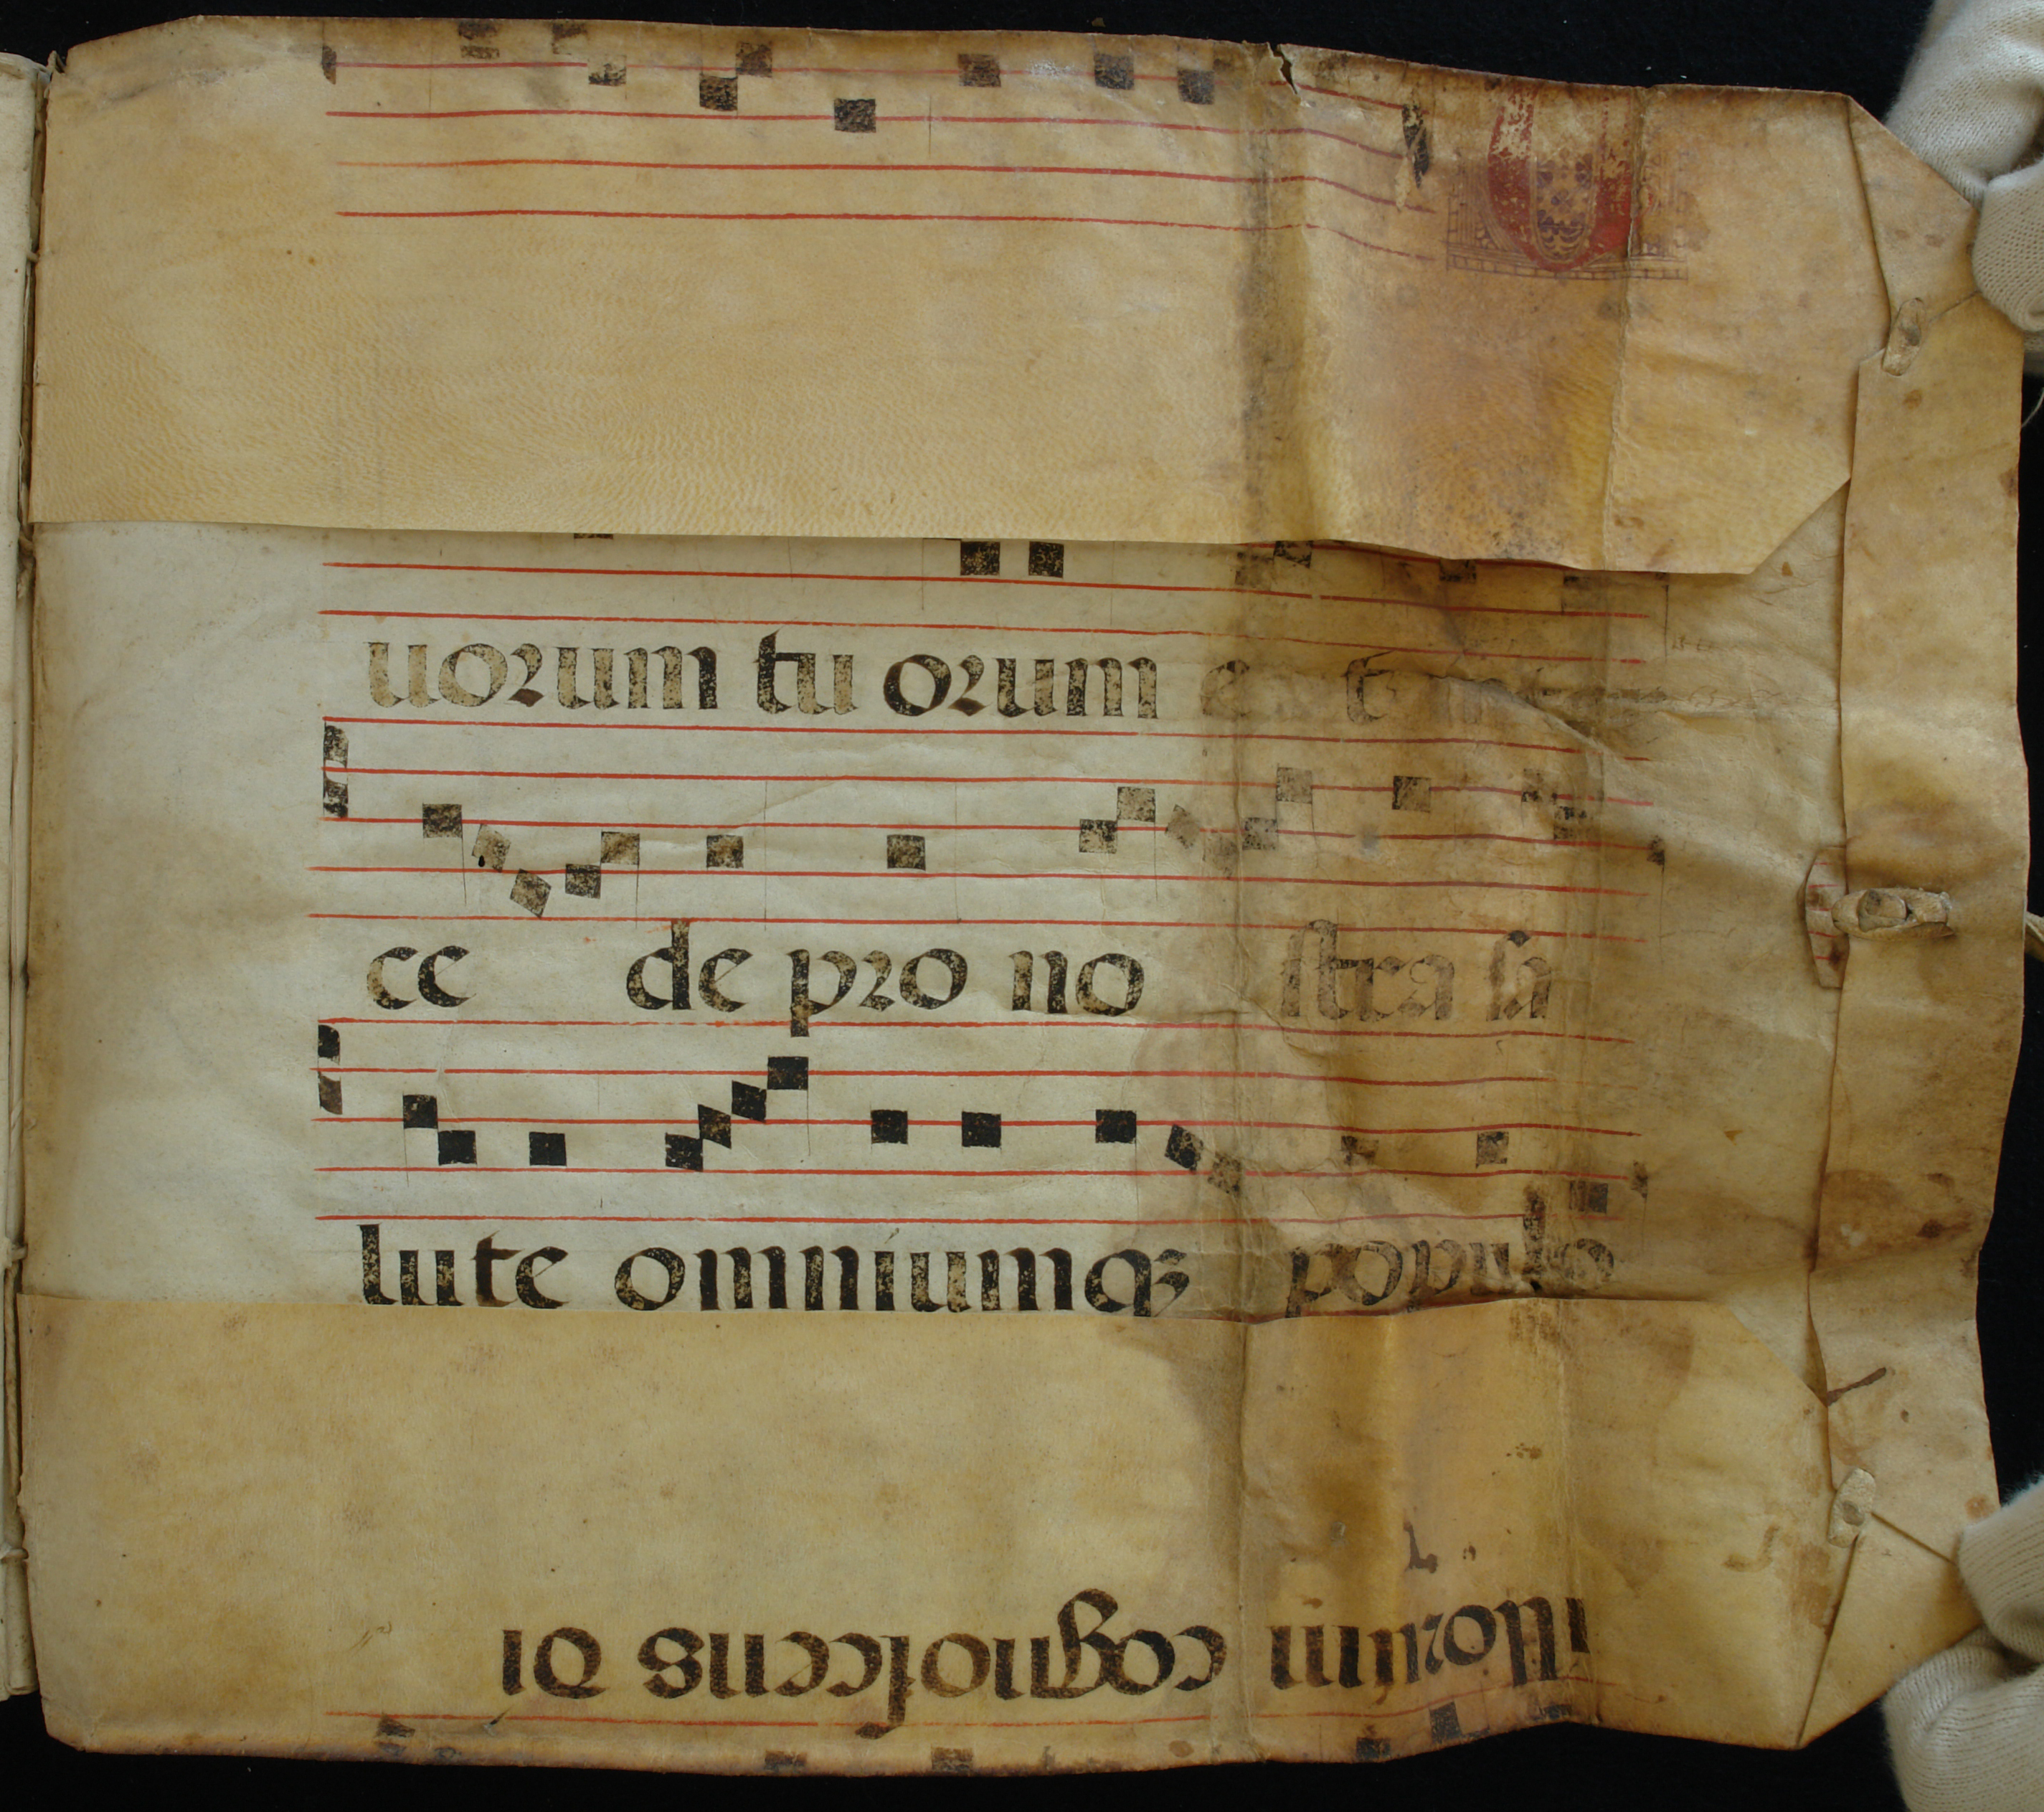 uorum tu orum
ce de pro no stra sa
lute omniumq3 populo
illorum cognoscens di